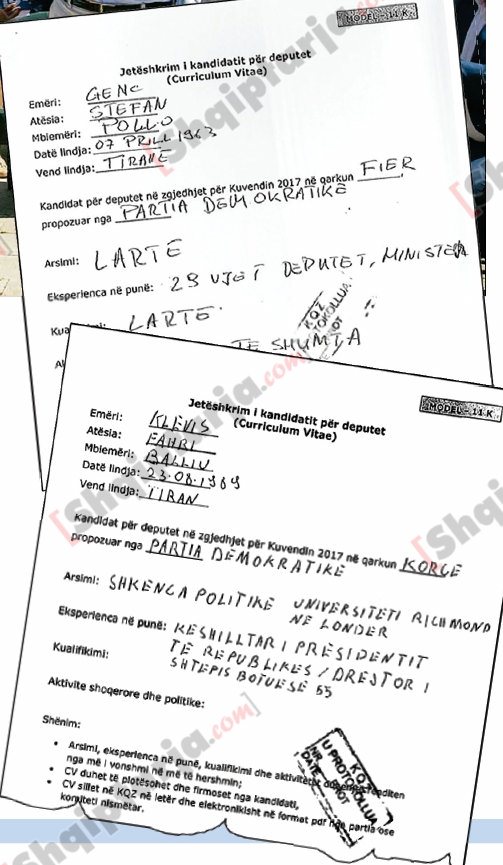 MODEL - 11 K
Jetëshkrim i kandidatit për deputet
(Curriculum Vitae)
Emëri: GENC
Atësia: STEFAN
Mbiemëri: POLLO
Datë lindja: 07 PRILL 1963
Vend lindja: TIRANE
Kandidat për deputet në zgjedhjet për Kuvendin 2017 në qarkun FIER
propozuar nga PARTIA DEMOKRATIKE
Arsimi: LARTE
Eksperienca në punë: 29 VJET DEPUTET, MINISTER
LARTE
TE SHUMTA
KQZ
[Shqiptarja.com]
MODEL - 11 K
Jetëshkrim i kandidatit për deputet
(Curriculum Vitae)
Emëri: KLEVIS
Atësia: FAHRI
Mbiemëri: BALLIU
Datë lindja: 23.08.1989
Vend lindja: TIRAN
Kandidat për deputet në zgjedhjet për Kuvendin 2017 në qarkun KORCE
propozuar nga PARTIA DEMOKRATIKE
Arsimi: SHKENCA POLITIKE UNIVERSITETI RICHMOND
NE LONDER
Eksperienca në punë: KESHILLTAR I PRESIDENTIT
TE REPUBLIKES / DREJTOR I
Kualifikimi: SHTEPIS BOTUESE 55
Aktivite shoqerore dhe politike:
Shënim:
• Arsimi, eksperienca në punë, kualifikimi dhe aktivitetet duhet të renditen
nga më i vonshmi në më të hershmin;
• CV duhet të plotësohet dhe firmoset nga kandidati,
• CV sillet në KQZ në letër dhe elektronikisht në format pdf nga partia ose
komiteti nismëtar.
KQZ
U PROTOKOLLUA
[Shqiptarja.com]